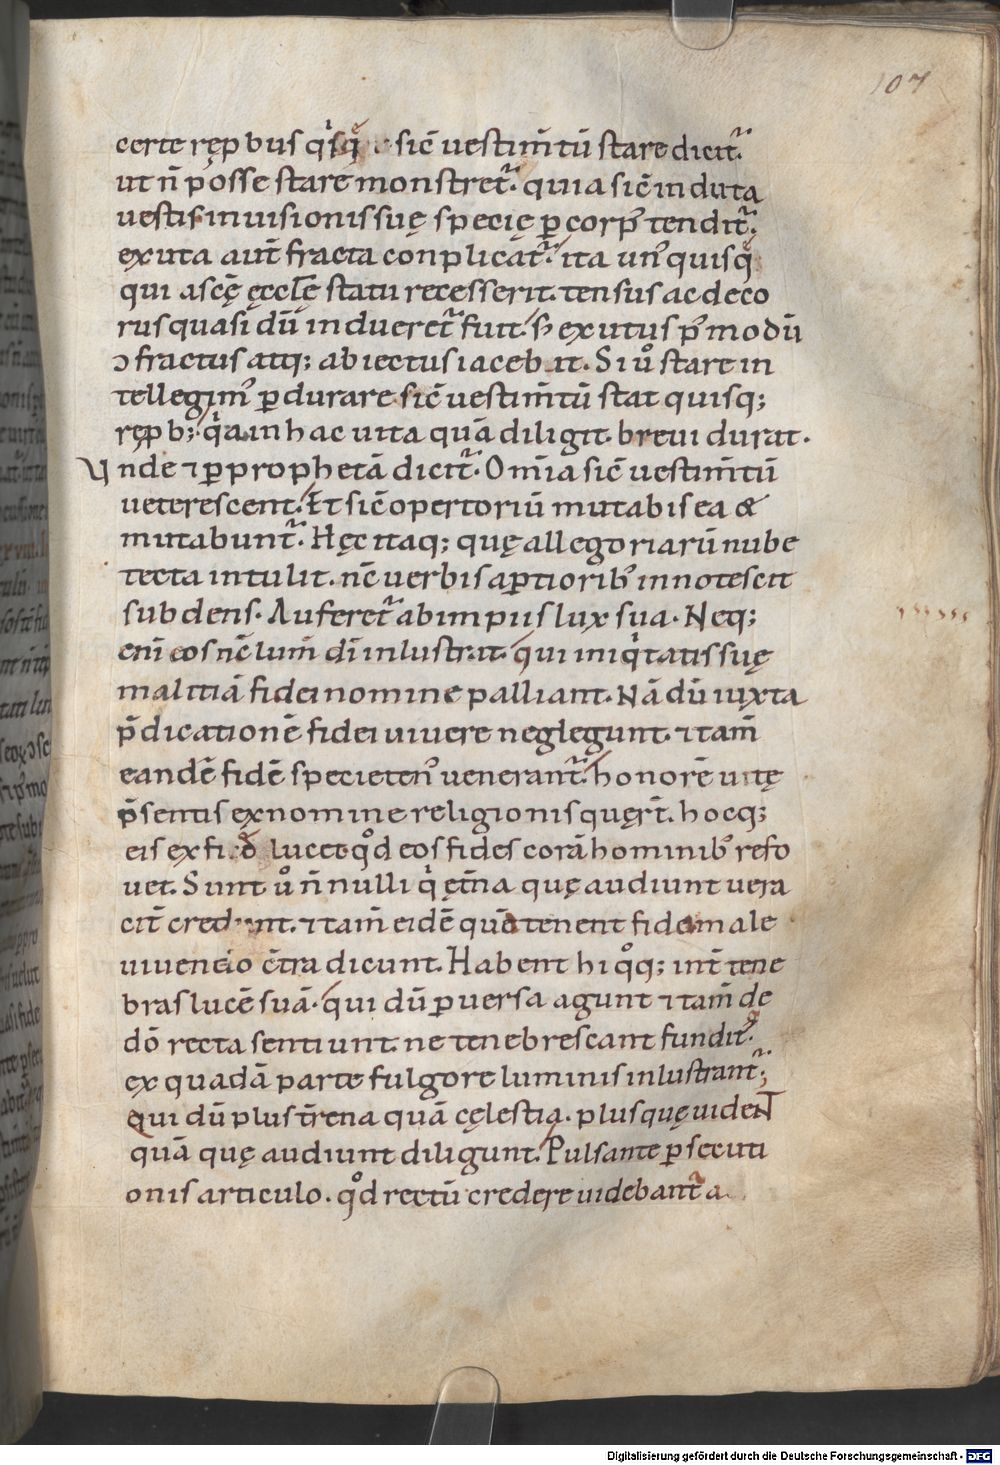 107
certe ręp bus qͥsq sic̄ uestim̄tū stare dicit᷑.
ut n̄ posse stare monstret᷑. quia sic̄ induta
uestis inuisionis suę specię ꝑ corp᷒ tendit᷑.
exuta aut̄ fracta conplicat᷑. ita un᷒ quisq
qui a scę̄ ęccłę statu recesserit. tensus ac deco
rus quasi dū indueret᷑ fuit. sꝫ exutus p᷒ modū
ꝯfractus atq; abiectus iacebit. Si uͦ stare in
tellegim᷒ ꝑdurare. sic̄ uestim̄tū stat quisq;
ręp b; qͥa in hac uita quā diligit. breui durat.
Unde ⁊ ꝑ prophetā dicit᷑. Om̄ia sic̄ uestim̄tū
ueterescent. Et sic̄ opertoriū mutabis ea &
mutabunt᷑. Hęc itaq; quę allegoriarū nube
tecta intulit. nc̄ uerbis aꝑtiorib᷒ innotescit
subdens. Auferet᷑ ab impiis lux sua. Neq;
eni̅ eos nc̄ lum̄ di̅ inlustrat. qui iniqͥtatis suę
malitiā fidei nomine palliant. Nā dū iuxta
p̄dicationē fidei uiuere neglegunt. ⁊ tam̄
eandē fidē specieten᷒ uenerant᷑. honorē uitę
p̄sentis ex nomine religionis quęrt̄. hocq;
eis ex fi lucet qͦd eos fides corā hominib᷒ refo
uet. Sunt uͦ n̄nulli qͥ ęt̄na quę audiunt uera
cit̄ credunt. ⁊ tam̄ eidē quā tenent fidei male
uiuendo c̄tradicunt. Habent hi qͦq; int̄ tene
bras lucē suā. qui dū ꝑuersa agunt ⁊ tam̄ de
dō recta sentiunt. ne tenebrescant fundit᷒.
ex quadā parte fulgore luminis inlustrant᷑;
Qui dū plus t̄rena quā cęlestia. plus quę uideɴᴛ
quā quę audiunt diligunt. Pulsante ꝑsecuti
onis articulo. qͦd rectū credere uidebant᷑ a
Digitalisierung gefördert durch die Deutsche Forschungsgemeinschaft - DFG